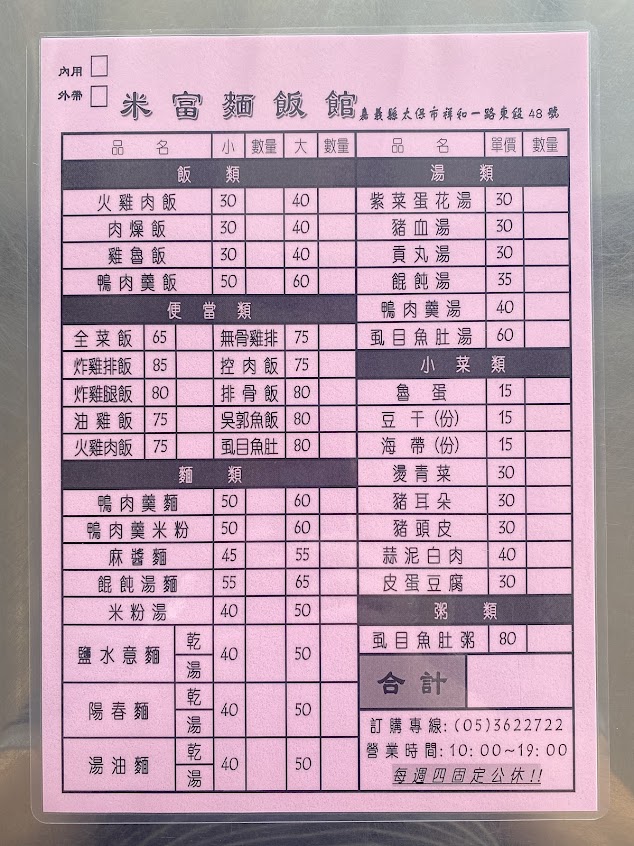 內用
外帶
米富麵飯館 嘉義縣太保市祥和一路東段48號
品名 小 數量 大 數量
飯類
火雞肉飯 30 40
肉燥飯 30 40
雞魯飯 30 40
鴨肉羹飯 50 60
便當類
全菜飯 65 無骨雞排 75
炸雞排飯 85 控肉飯 75
炸雞腿飯 80 排骨飯 80
油雞飯 75 吳郭魚飯 80
火雞肉飯 75 虱目魚肚 80
麵類
鴨肉羹麵 50 60
鴨肉羹米粉 50 60
麻醬麵 45 55
餛飩湯麵 55 65
米粉湯 40 50
鹽水意麵 乾 湯 40 50
陽春麵 乾 湯 40 50
湯油麵 乾 湯 40 50
品名 單價 數量
湯類
紫菜蛋花湯 30
豬血湯 30
貢丸湯 30
餛飩湯 35
鴨肉羹湯 40
虱目魚肚湯 60
小菜類
魯蛋 15
豆干(份) 15
海帶(份) 15
燙青菜 30
豬耳朵 30
豬頭皮 30
蒜泥白肉 40
皮蛋豆腐 30
粥類
虱目魚肚粥 80
合計
訂購專線:(05)3622722
營業時間:10:00~19:00
每週四固定公休!!